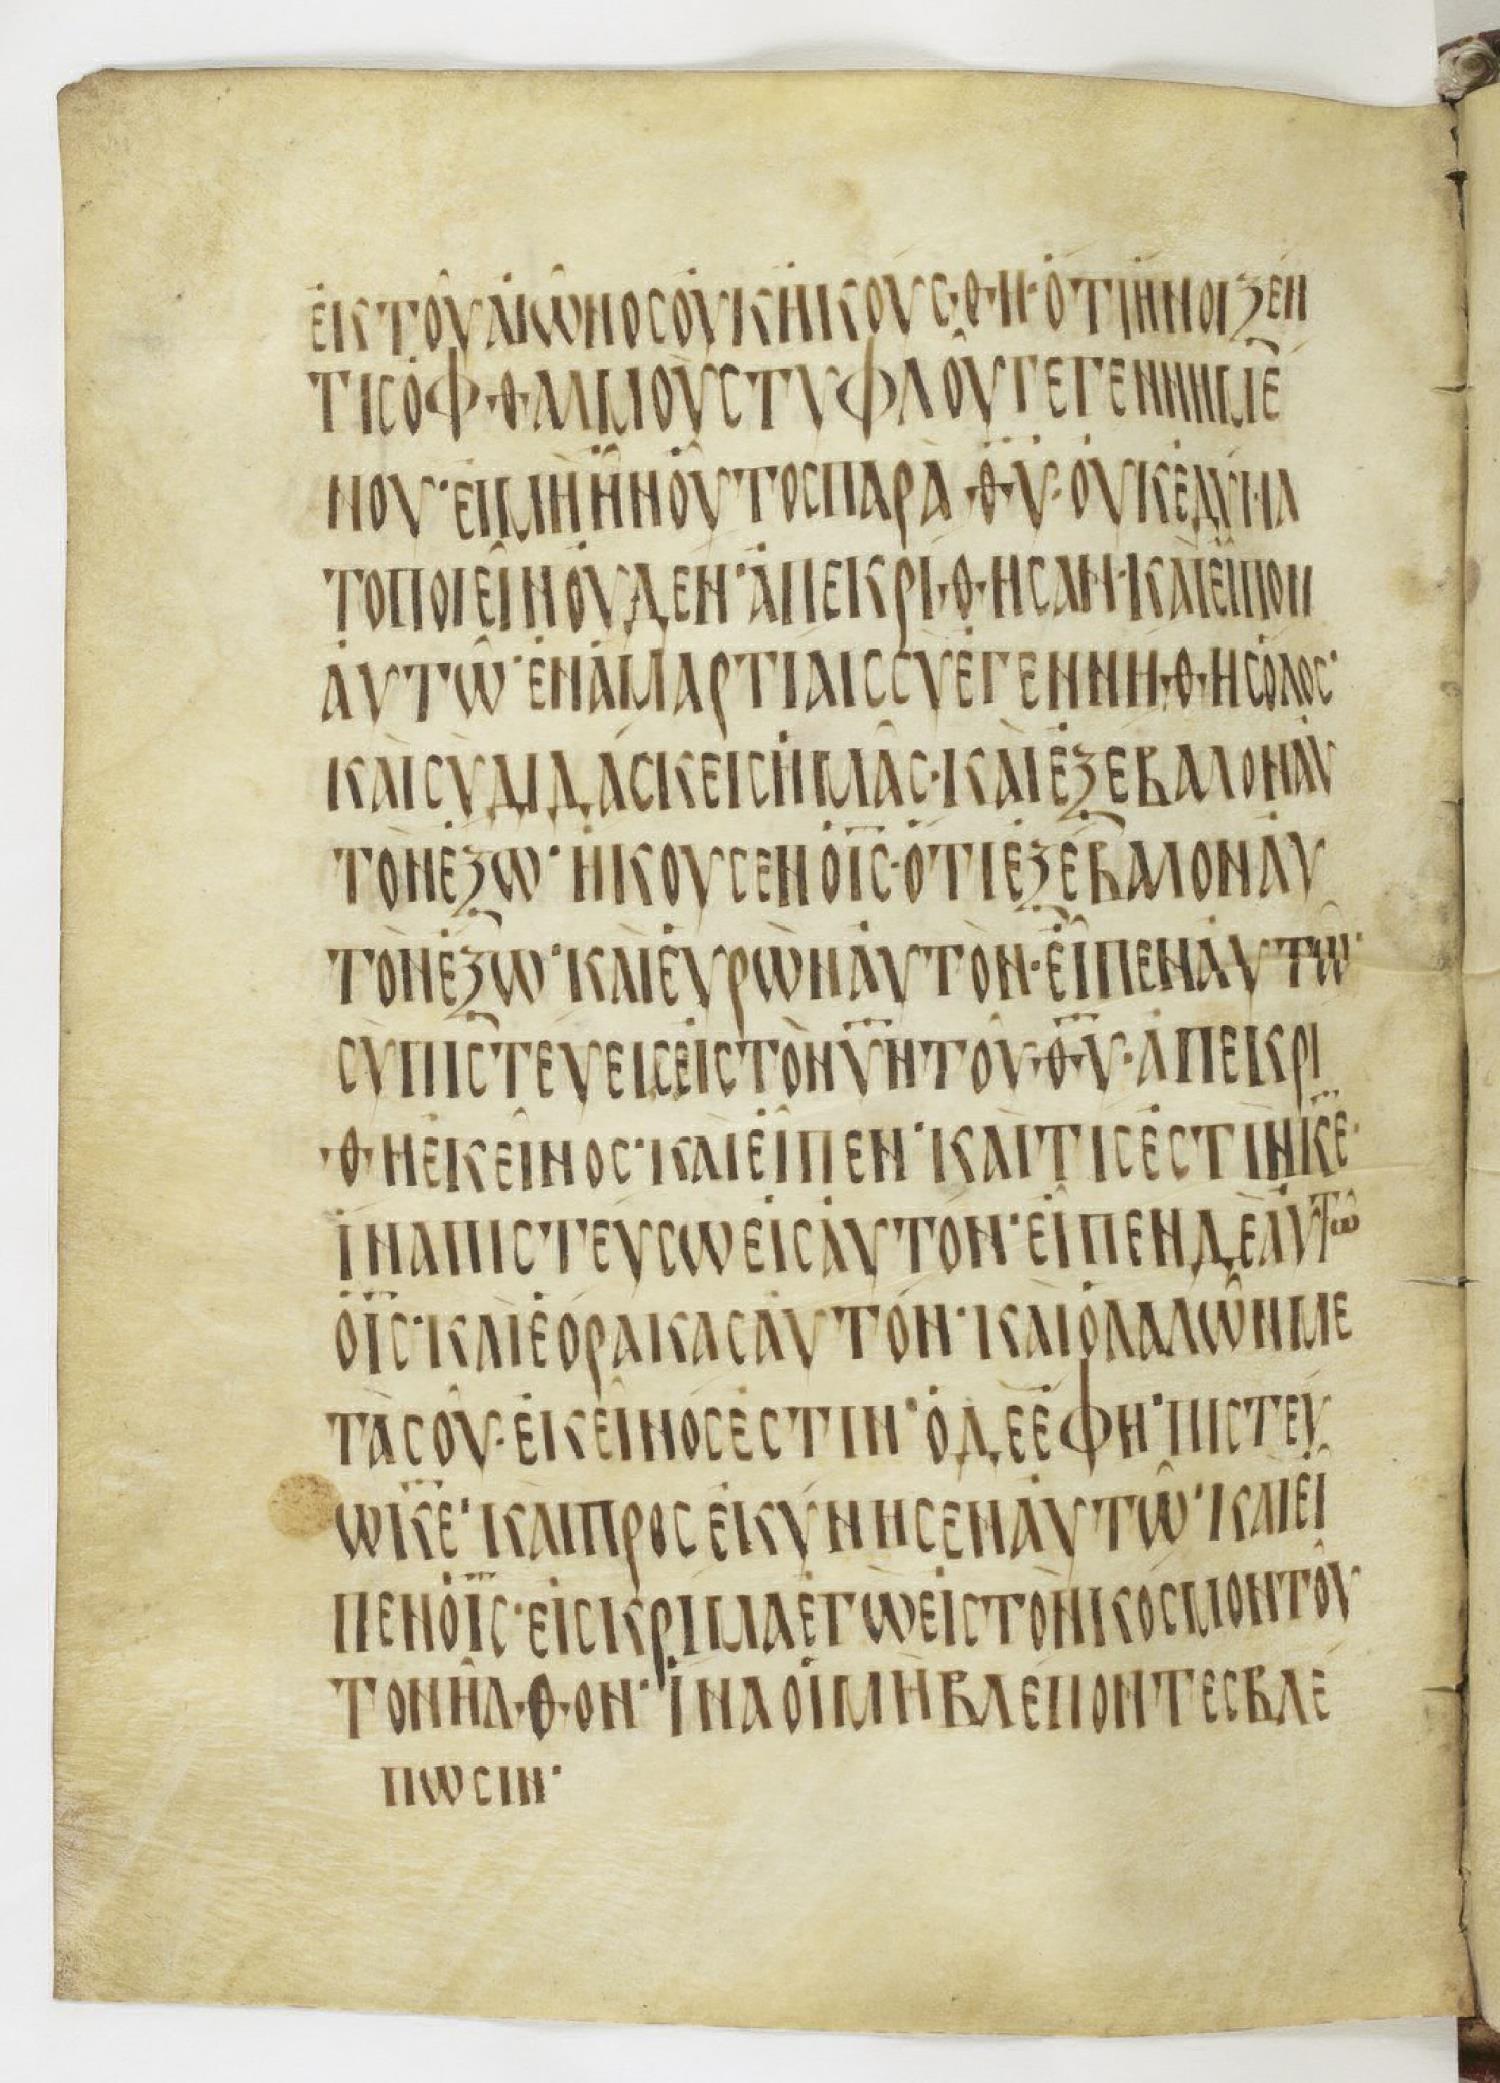 ἐκτοῦἀιῶνοσοὐκἠκούσθη· ὅτιἤνοιξέν
τισὀφθαλμοὺςτυφλοῦγεγεννημέ
νου· εἰμὴἦνοὗτοςπαρὰθ̅υ̅· οὐκἐδύνα
τοποιεῖνοὐδέν· ἀπεκρίθησαν· καὶεἶπον
ἀυτῶ· ἐνἁμαρτίαιςσὺἐγεννήθησὅλος·
καὶσὺδιδάσκεισἡμᾶς· καὶἐξέβαλονἀυ
τὸνἔξω· ἤκουσενὁι̅ς̅· ὅτιἐξέβαλονἀυ
τὸνἔξω· καὶεὑρὼνἀυτὸν· εἶπενἀυτῶ·
σὺπιστεύεισεἰςτὸνυ̅ν̅τοῦθ̅υ̅· ἀπεκρί
θηἐκεῖνος· καὶεἶπεν· καὶτίσἐστὶνκ̅ε̅·
ἵναπιστεύσωεἰσἀυτόν· εἶπενδὲἀυτῶ
ὁι̅ς̅· καὶἑόρακασἀυτόν· καὶὁλαλῶνμε
τὰσοῦ· ἐκεῖνόσἐστιν· ὁδὲἔφη· πιστεύ
ωκ̅ε̅· καὶπροσεκύνησενἀυτῶ· καὶεἶ
πενὁι̅ς̅· εἰσκρίμαἐγὼεἰστὸνκόσμοντοῦ
τονἦλθον· ἵναοἱμὴβλέποντεςβλέ
πωσιν·